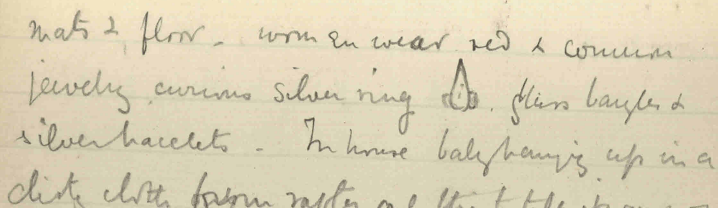 mats & floor - women wear red & common
jewelry curious silver ring . glass bangles &
silver bracelets - In house baby hanging up in a
dirty cloth from rafter